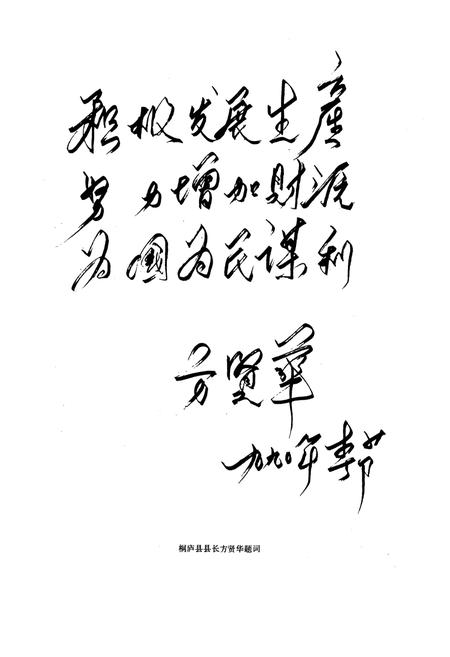 积极发展生產
努力增加财源
为國为民谋利
方贤華
一九九〇年春节
桐庐县县长方贤华题词